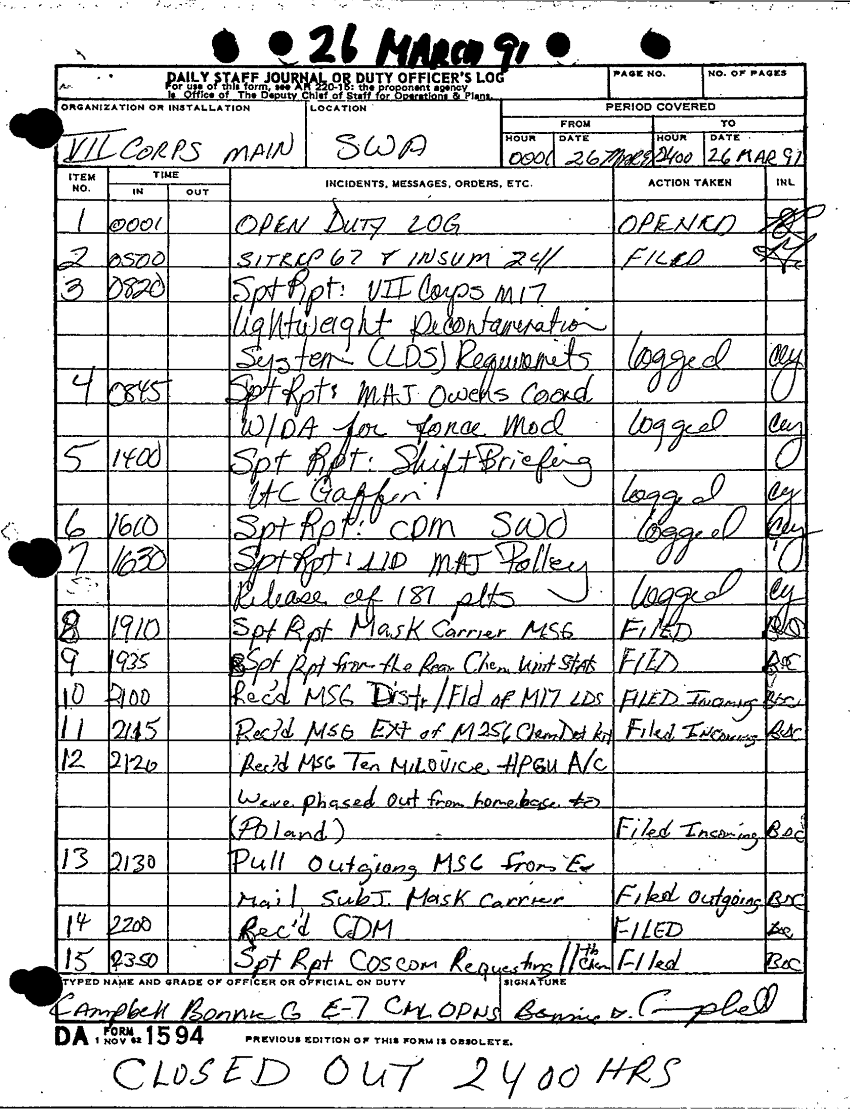 26 MARCH 91
DAILY STAFF JOURNAL OR DUTY OFFICER'S LOG
For use of this form, see AR 220-15; the proponent agency
is Office of The Deputy Chief of Staff for Operations & Plans.
PAGE NO.
NO. OF PAGES
ORGANIZATION OR INSTALLATION
VII CORPS MAIN
LOCATION
SWA
PERIOD COVERED
FROM
TO
HOUR DATE HOUR DATE
0001 26 MAR 91 2400 26 MAR 91
ITEM NO. TIME IN OUT INCIDENTS, MESSAGES, ORDERS, ETC. ACTION TAKEN INL
1 0001 OPEN DUTY LOG OPENED
2 0500 SITREP 67 & INSUM 241 FILED
3 0820 Spt Rpt: VII Corps M17
lightweight Decontamination
System (LDS) Requirments logged cey
4 0845 Spt Rpt: MAJ Owens Coord
W/DA for Force Mod logged cey
5 1400 Spt Rpt: Shift Briefing
LTC Gaffin logged cey
6 1610 Spt Rpt: CDM SWO logged cey
7 1630 Spt Rpt: 1ID MAJ Polley
Release of 187 plts logged cey
8 1910 Spt Rpt Mask Carrier MSG FILED
9 1935 Spt Rpt from the Rear Chem Unit Stats FILED BGC
10 2100 Rec'd MSG Distr/Fld of M17 LDS FILED Incoming BGC
11 2115 Rec'd MSG EXT of M256 Chem Det kit Filed Incoming BGC
12 2120 Rec'd MSG Ten MILOVICE HPGU A/C
Were phased out from homebase to
(Poland) Filed Incoming BGC
13 2130 Pull Outgiong MSG from E
Mail, Subj. Mask Carrier Filed Outgoing BGC
14 2200 Rec'd CDM FILED BGC
15 2350 Spt Rpt COSCOM Requesting 11th Chem Filed BGC
TYPED NAME AND GRADE OF OFFICER OR OFFICIAL ON DUTY
Campbell Bonnie G E-7 CML OPNS
SIGNATURE
Bonnie G. Campbell
DA FORM 1 NOV 62 1594
PREVIOUS EDITION OF THIS FORM IS OBSOLETE.
CLOSED OUT 2400 HRS